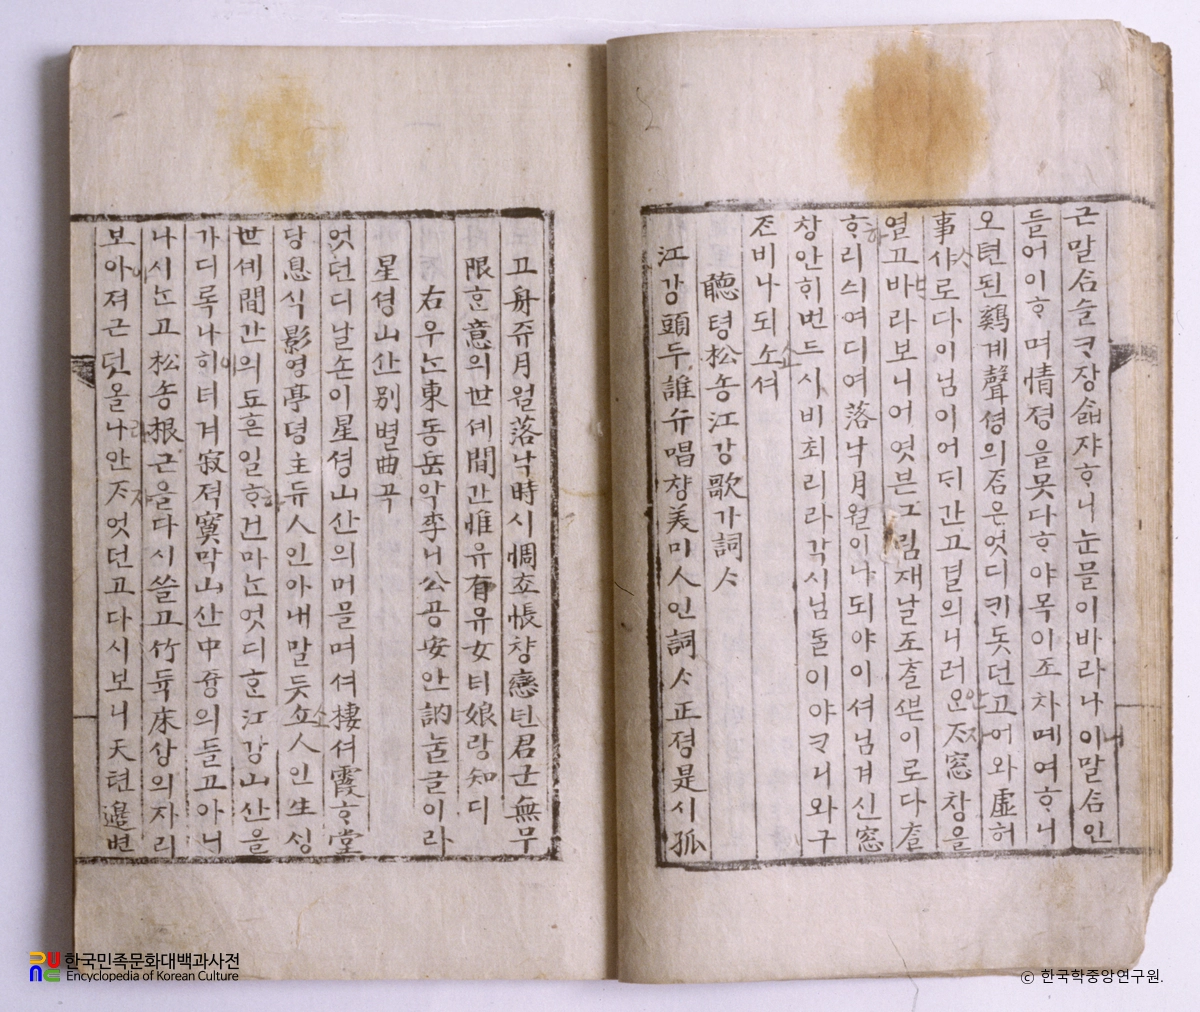 근말ᄉᆞᆷ슬ᄏᆞ장ᄉᆞᆲ쟈ᄒᆞ니눈믈이바라나이말ᄉᆞᆷ인
들어이ᄒᆞ며情졍을못다ᄒᆞ야목이조차메여ᄒᆞ니
오뎐된鷄계聲셩의ᄌᆞᆷ은엇디ᄭᆡ돗던고어와虛허
事ᄉᆞ로다이님이어ᄃᆡ간고결의니러안자窓창을
열고바라보니어엿븐그림재날조ᄎᆞᆯᄲᅮᆫ이로다ᄎᆞᆯ
하리싀여디여落낙月월이나되야이셔님겨신窓
창안ᄒᆡ번드시비최리라각시님ᄃᆞᆯ이야ᄏᆞ니와구
ᄌᆞᆫ비나되소셔
聽텽松숑江강歌가詞ᄉᆞ
江강頭두誰슈唱챵美미人인詞ᄉᆞ正졍是시孤
고舟쥬月월落낙時시惆쵸悵챵戀년君군無무
限ᄒᆞᆫ意의世셰間간惟유有유女녀娘랑知디
右우ᄂᆞᆫ東동岳악李니公공安안訥눌글이라
星셩山산別별曲곡
엇던디날손이星셩山산의머믈며셔棲셔霞하堂
당息식影영亭뎡主듀人인아내말듯소人인生ᄉᆡᆼ
世셰間간의됴흔일하건마ᄂᆞᆫ엇디ᄒᆞᆫ江강山산을
가디록나이너겨寂젹寞막山산中듕의들고아니
나시ᄂᆞᆫ고松숑根근을다시쓸고竹듁床상의자리
보아져근덧올라안자엇던고다시보니天텬邊변
한국민족문화대백과사전
Encyclopedia of Korean Culture
ⓒ 한국학중앙연구원.